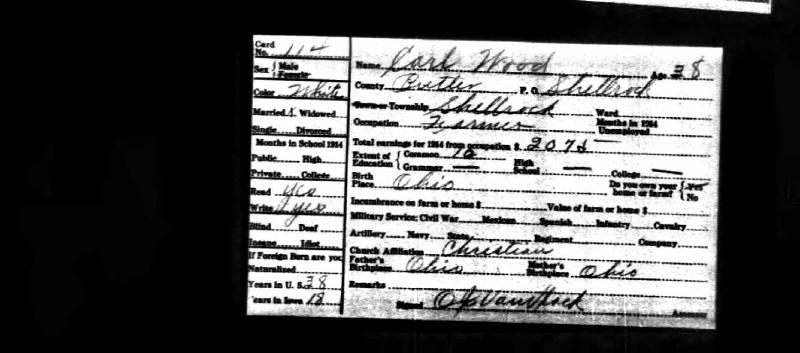 Card No. 114
Sex { Male Female
Color White
Married 1 Widowed
Single Divorced
Months in School 1914
Public High
Private College
Read yes
Write yes
Blind Deaf
Insane Idiot
If Foreign Born are you
Naturalized
Years in U. S. 38
ears in Iowa 18
Name Carl Wood Age 38
County Butler P. O. Shellrock
Town or Township Shellrock Ward
Occupation Farmer Months in 1914 Unemployed
Total earnings for 1914 from occupation $ 2075
Extent of Education { Common 10 Grammar — High School — College —
Birth Place Ohio Do you own your home or farm? { Yes No
Incumbrance on farm or home $ Value of farm or home $
Military Service: Civil War Mexican Spanish Infantry Cavalry
Artillery Navy State Regiment Company
Church Affiliation Christian
Father's Birthplace Ohio Mother's Birthplace Ohio
Remarks
Signed Assessor